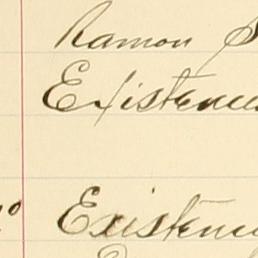 Ramon S
Existenci
º Existenci